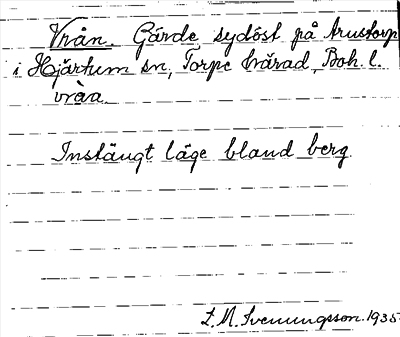 Vrån. Gärde sydöst på Arustorp
i Hjärtum sn, Torpe härad, Boh. l.
vràa
Instängt läge bland berg
L. M. Svenungsson. 1935.